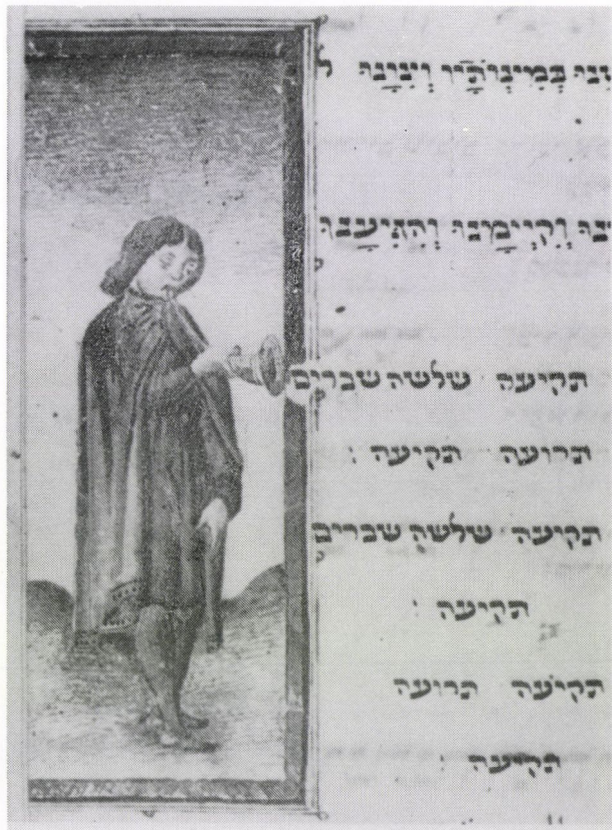 נו בְּמִצְוֹתָיו וְצִוָּנוּ ל
נו וְקִיְימָנוּ וְהִגִּיעָנוּ
תקיעה שלשה שברים
תרועה תקיעה :
תקיעה שלשה שברים
תקיעה :
תקיעה תרועה
תקיעה :